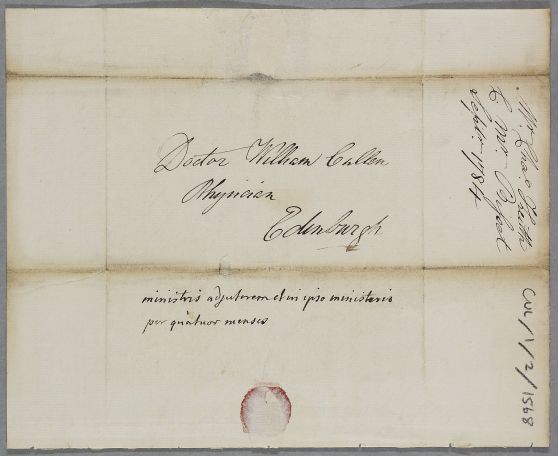 Doctor William Cullen
Physician
Edinburgh
ministris adjutorem et in ipso ministerio
per quatuor menses
Mr. Chas. Keith
C. Mr. Bisset
Septr. 1784
CUL/1/2/1568